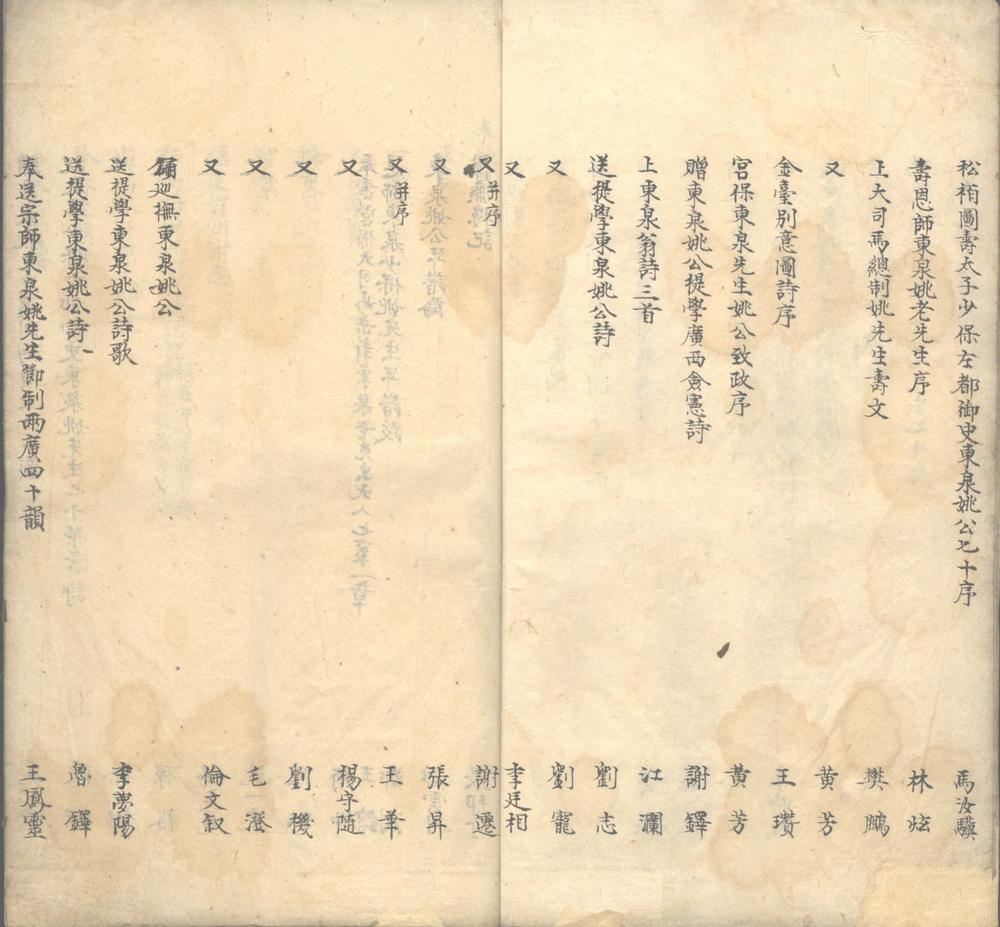 松栢圖壽太子少保左都御史東泉姚公七十序 馬汝驥
壽恩師東泉姚老先生序 林炫
上大司馬總制姚先生壽文 樊鵬
又 黄芳
金臺別意圖詩序 王瓚
宮保東泉先生姚公致政序 黄芳
贈東泉姚公提學廣西僉憲詩 謝鐸
上東泉翁詩三首 江瀾
送提學東泉姚公詩 劉志
又 劉寵
又 李廷相
又并序 謝遷
又 張昇
又并序 王華
又 楊守隨
又 劉機
又 毛澄
又 倫文叙
巡撫東泉姚公
送提學東泉姚公詩歌 李夢陽
送提學東泉姚公詩 魯鐸
奉送宗師東泉姚先生節制兩廣四十韻 王鳳靈